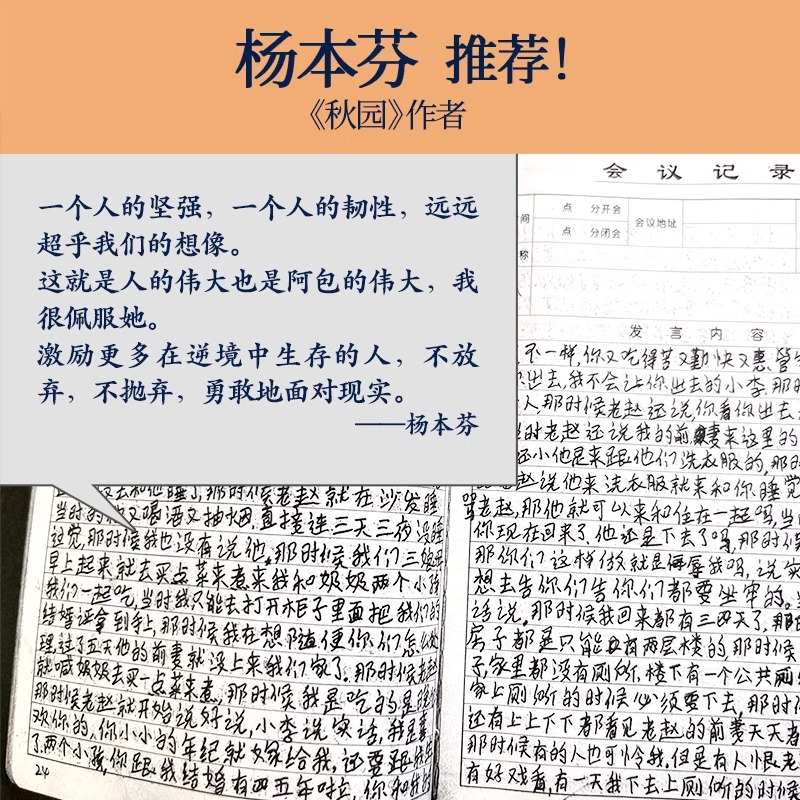 杨本芬 推荐！
《秋园》作者
一个人的坚强，一个人的韧性，远远
超乎我们的想像。
这就是人的伟大也是阿包的伟大，我
很佩服她。
激励更多在逆境中生存的人，不放
弃，不抛弃，勇敢地面对现实。
——杨本芬
去和他睡了，那时候老赵就在沙发睡
当时的 又喝酒又抽烟，直接连三天三夜没睡
过觉，那时候我也没有说他，那时候我们三娘
早上起来就去买点菜来煮来我和奶奶两个小孩
我们一起吃，当时我只能去打开柜子里面把我们的
结婚证拿到手上，那时候我在想随便你们怎么处
理，过了五天他的前妻就没上来我们家了。那时候老赵
就喊奶奶去买一点菜来煮，那时候我是吃的是
那时候老赵就开始说好说，小李说实话，我是喜
欢你的，你小小的年纪就嫁给我，还要跟我
了两个小孩，你跟我结婚有四五年啦，你和我
24
会议记录
间 点 分开会 会议地址
点 分闭会
称
人
发言内容
不一样，你又吃得苦又勤快又惠
出去，我不会让你出去的小李，那时
人，那时候老赵还说，你看你出去
时老赵还说我的前妻来这里的
还小他是来跟他们洗衣服的，那
赵说他来洗衣服就来和你睡觉
骂老赵，那他就可以来和住在一起吗，当
你现在回来了，他还是下去了吗，那时候
那你们这样做就是侮辱我吗，说实
想去告你们告你们都要坐牢的。
话说，那时候我回来都有三四天了，那
房子都是只能有两层楼的那时候
子，家里都没有厕所，楼下有一个公共厕
家上厕所的时候必须要下去，那时
还有上上下下都看见老赵的前妻天天
那时候有的人也可怜我，但是有人恨老
有好戏看，有一天我下去上厕所的时候